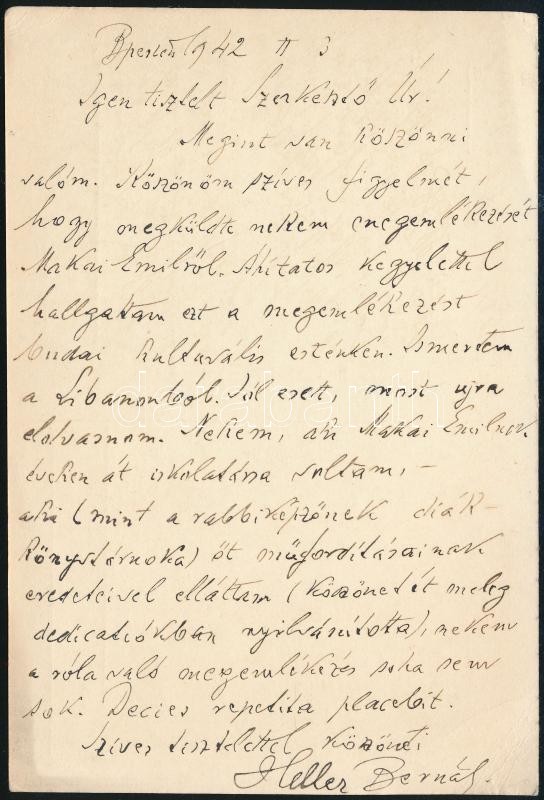 Bpesten 1942 II 3
Igen tisztelt Szerkesztő Úr!
Megint van köszönni
valóm. Köszönöm szíves figyelmét,
hogy megküldte nekem megemlékezését
Makai Emilről. Áhítatos kegyelettel
hallgattam ezt a megemlékezést
budai kulturális estünken. Ismertem
a Libanonból. Jól esett, most ujra
elolvasnom. Nekem, aki Makai Emilnek
éveken át iskolatársa voltam, –
aki (mint a rabbiképzőnek diák-
könyvtárnoka) őt műfordításainak
eredeteivel elláttam (köszönetét meleg
dedicatiókban nyilvánította), nekem
a róla való megemlékezés soha sem
sok. Decies repetita placebit.
Szíves tisztelettel köszönti
Heller Bernát.